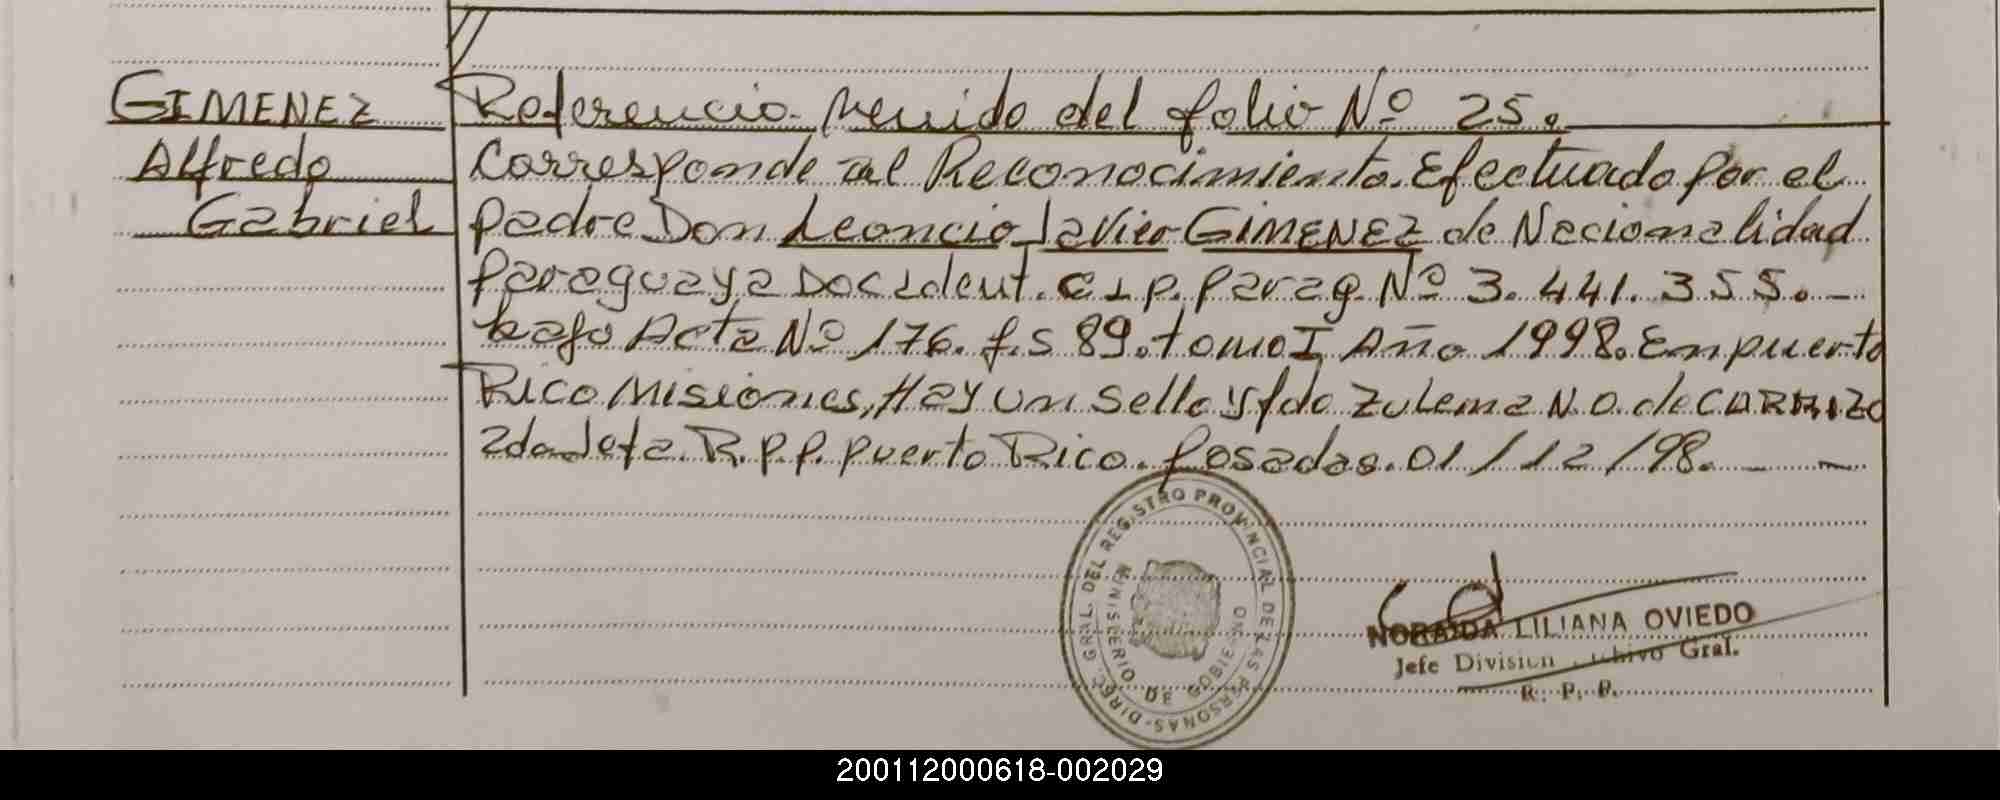 GIMENEZ
Alfredo
Gabriel
Referencia venida del folio Nº 25.
Corresponde al Reconocimiento. Efectuado por el
padre Don Leoncio Javier GIMENEZ de Nacionalidad
paraguaya Doc ident. C.I.P. parag. Nº 3.441.355. _
bajo Acta Nº 176. f.s 89. tomo I, Año 1998. En puerto
Rico Misiones, Hay un sello y fdo Zulema N.O. de CARRIZO
R.P.P. puerto Rico. Posadas. 01/12/98. _ _
DIREC. GRAL. DEL REGISTRO PROVINCIAL DE LAS PERSONAS-
MINISTERIO DE GOBIERNO
LILIANA OVIEDO
Jefe Division Archivo Gral.
R. P. P.
200112000618-002029